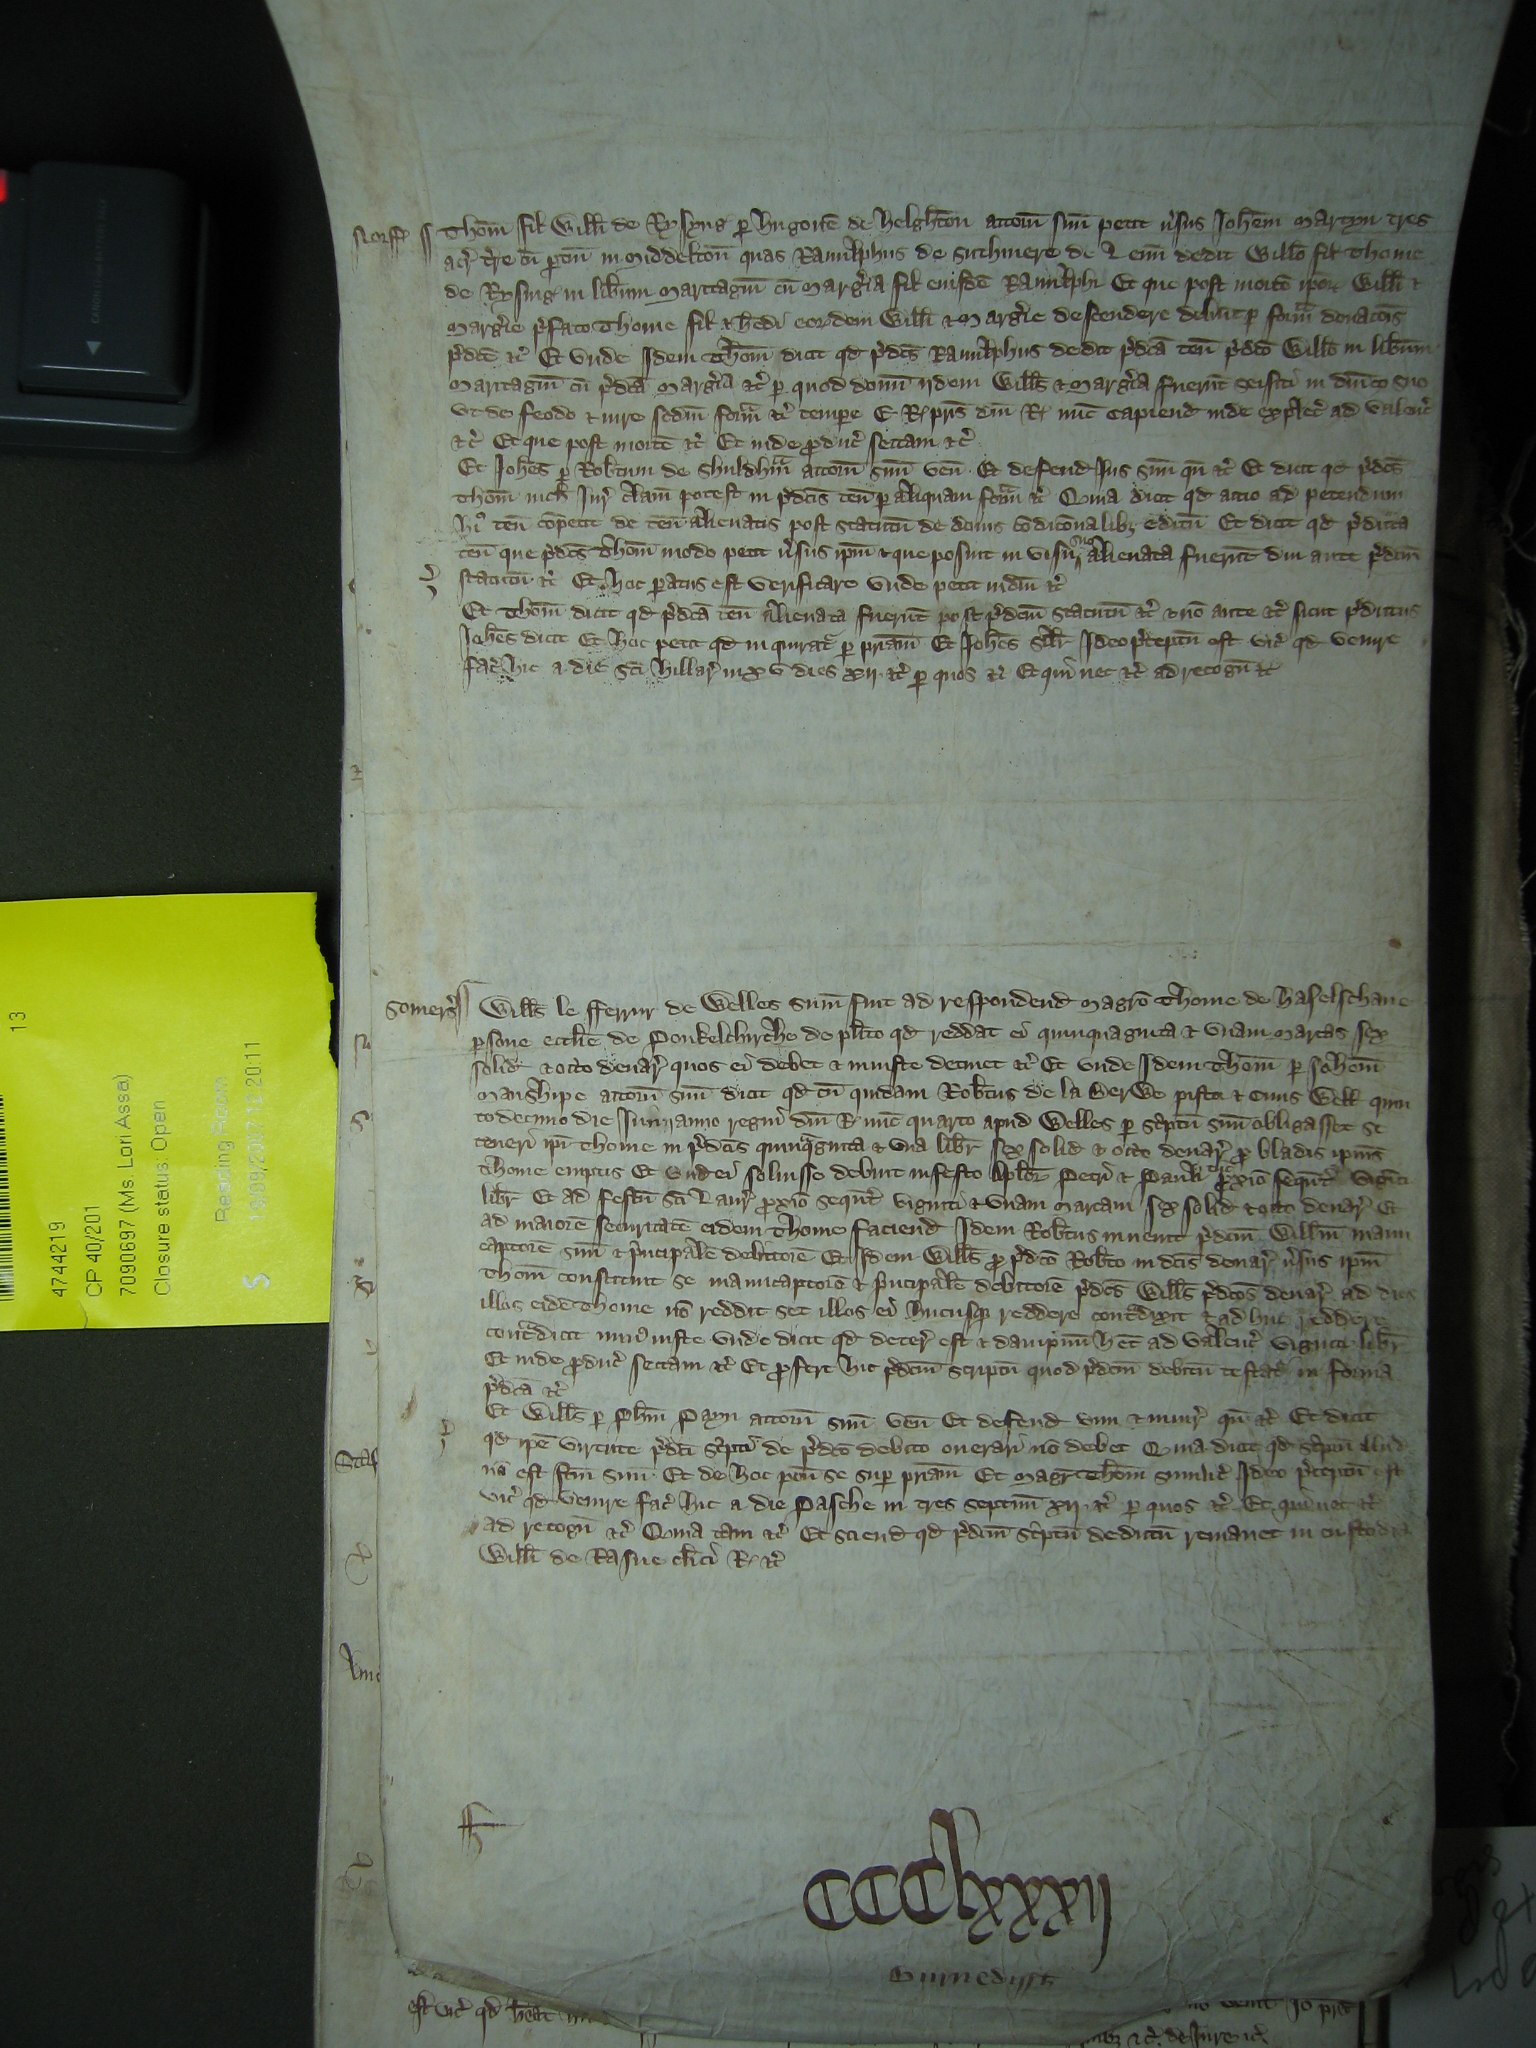 Norff Thom̄ fil Willi de Rysyng̛ ꝑ Hugonē de Helghton attorn̄ suū petit ṽsus Joh̄em Martyn tres
acr̄ t̄re cū ꝑtin̄ in Middelton̄ quas Ranulphus de Suthmere de Lenn̄ dedit Willo fil Thome
de Rysing̛ in lib̄um maritagiū cū Marg̃ia fil eiusdē Ranulphi Et que post mortē ip̄or̄ Willi &
Marg̃ie p̃fato Thome fil & h̄edi eordem Willi & Marg̃ie descendere debent ꝑ form̄ donacōis
p̃dc̄e &c̃ Et unde Idem Thom̄ dicit qd p̃dc̄s Ranulphus dedit p̃dc̄a ten̄ p̃dc̄o Willo in lib̄um
maritagiū cū p̃dc̄a Marg̃ia &c̃ ꝑ quod donū ijdem Wills & Marg̃ia fuerūt seisiti in dn̄ico suo
ut de feodo & iure scdm̄ form̄ &c̃ tempe E R̛ pr̄is dn̄i R̛ nūc capiend inde explec̃ ad valenc̃
&c̃ Et que post mortē &c̃ Et inde ꝓduc̃ sectam &c̃
Et Joh̄es ꝑ Rob̄tum de Shuldh̄m attorn̄ suū ven̄ Et defend Jus suū qn̄ &c̃ Et dicit qd p̃dc̄s
Thom̄ nich̄ Jur̄ clam̄ potest in p̃dc̄is ten̄ ꝑ aliquam form̄ &c̃ Quia dicit qd actio ad petendum
h̄i ten̄ cōpetit de ten̄ alienatis post statutū de donis cōdicōnalibȝ editū Et dicit qd p̃dicta
ten̄ que p̃dc̄s Thom̄ modo petit ṽsus ip̄m & que posuit in visu suo alienata fuerūt diu ante p̃dc̄m
statutū &c̃ Et hoc ꝑatus est verificare unde petit iudm̄ &c̃
Et Thom̄ dicit qd p̃dc̄a ten̄ alienata fuerūt post p̃dc̄m statutū &c̃ & nō ante &c̃ sicut p̃dictus
Joh̄es dicit Et hoc petit qd inquirat̃ ꝑ pr̄iam Et Joh̄es siłr Ideo p̃ceptū est vic̃ qd venire
fac̃ hic a die Sc̄i Hillar̄ in xv dies xij &c̃ ꝑ quos &c̃ Et qui nec &c̃ ad recogn̄ &c̃
Somers̃ Wills le fferrur de Welles sum̄ fuit ad respondend Magr̄o Thome de Haselschawe
ꝑsone eccl̄ie de Ponkelchirche de pl̄ito qd reddat ei quinquaginta & unam marcas sex
solid & octo denar̄ quos ei debet & iniuste detinet &c̃ Et unde Idem Thom̄ ꝑ Joh̄em
Manshipe attorn̄ suū dicit qd cū quidam Rob̄tus de la Berwe pistor & civis Well quin
todecimo die Junij anno regni dn̄i R̛ nūc quarto apud Welles ꝑ sc̃ptū suū obligasset se
teneri ip̄i Thome in p̃dc̄is quinq̃ginta & una libr̄ sex solid & octo denar̄ ꝓ bladis ipius
Thome emptis Et unde ei soluisse debuit in festo Aplor̄ Petri & Pauli tūc ꝓxiō sequēt̃ viginti
libr̄ Et ad festū Sc̄i Laur̄ ꝓxiō sequēt̃ viginti & unam marcam sex solid & octo denar̄ Et
ad maiorē securitatē eidem Thome faciend Idem Rob̄tus invenit p̃dc̄m Willm̄ manu
captorē suū & p̃ncipalē debitorē Et Idem Wills ꝓ p̃dc̄o Rob̄to in dc̄is denar̄ ṽsus ip̄m
Thom̄ constituit se manucaptorē & p̃ncipalē debitorē p̃dc̄s Wills p̃dc̄os denar̄ ad dies
illos eidē Thome nō reddit set illos ei hucusqȝ reddere cont̃dixit & adhuc reddere
cont̃dicit iniuste unde dicit qd det̃ior̄ est & dampnū h̄et ad valenc̃ viginti libr̄
Et inde ꝓduc̃ sectam &c̃ Et ꝓfert hic p̃dc̄m scriptū quod p̃dc̄m debitū testat̃ in forma
p̃dc̄a &c̃
Et Wills ꝑ Ph̄m Payn attorn̄ suū ven̄ Et defend vim & iniur̄ qn̄ &c̃ Et dicit
qd ip̄e virtute p̃dc̄i sc̃pti de p̃dc̄o debito onerari nō debet Quia dicit qd sc̃ptū illud
nō est fc̄m suū Et de hoc pon̄ se sup̱ pr̄iam Et Magr̄ Thom̄ similit̃ Ideo p̃ceptū est
vic̃ qd venire fac̃ hic a die Pasche in tres septim̄ xij &c̃ ꝑ quos &c̃ Et qui nec &c̃
ad recogn̄ &c̃ Quia tam &c̃ Et sciend qd p̃dc̄m sc̃ptū dedictū remanet in custodia
Willi de Rasne cl̄ici R̛ &c̃
CCClxxxij
est vic̃ qd
4744219
CP 40/201
7090697 (Ms. Lori Assa)
Closure status: Open
Reading Room
13
S